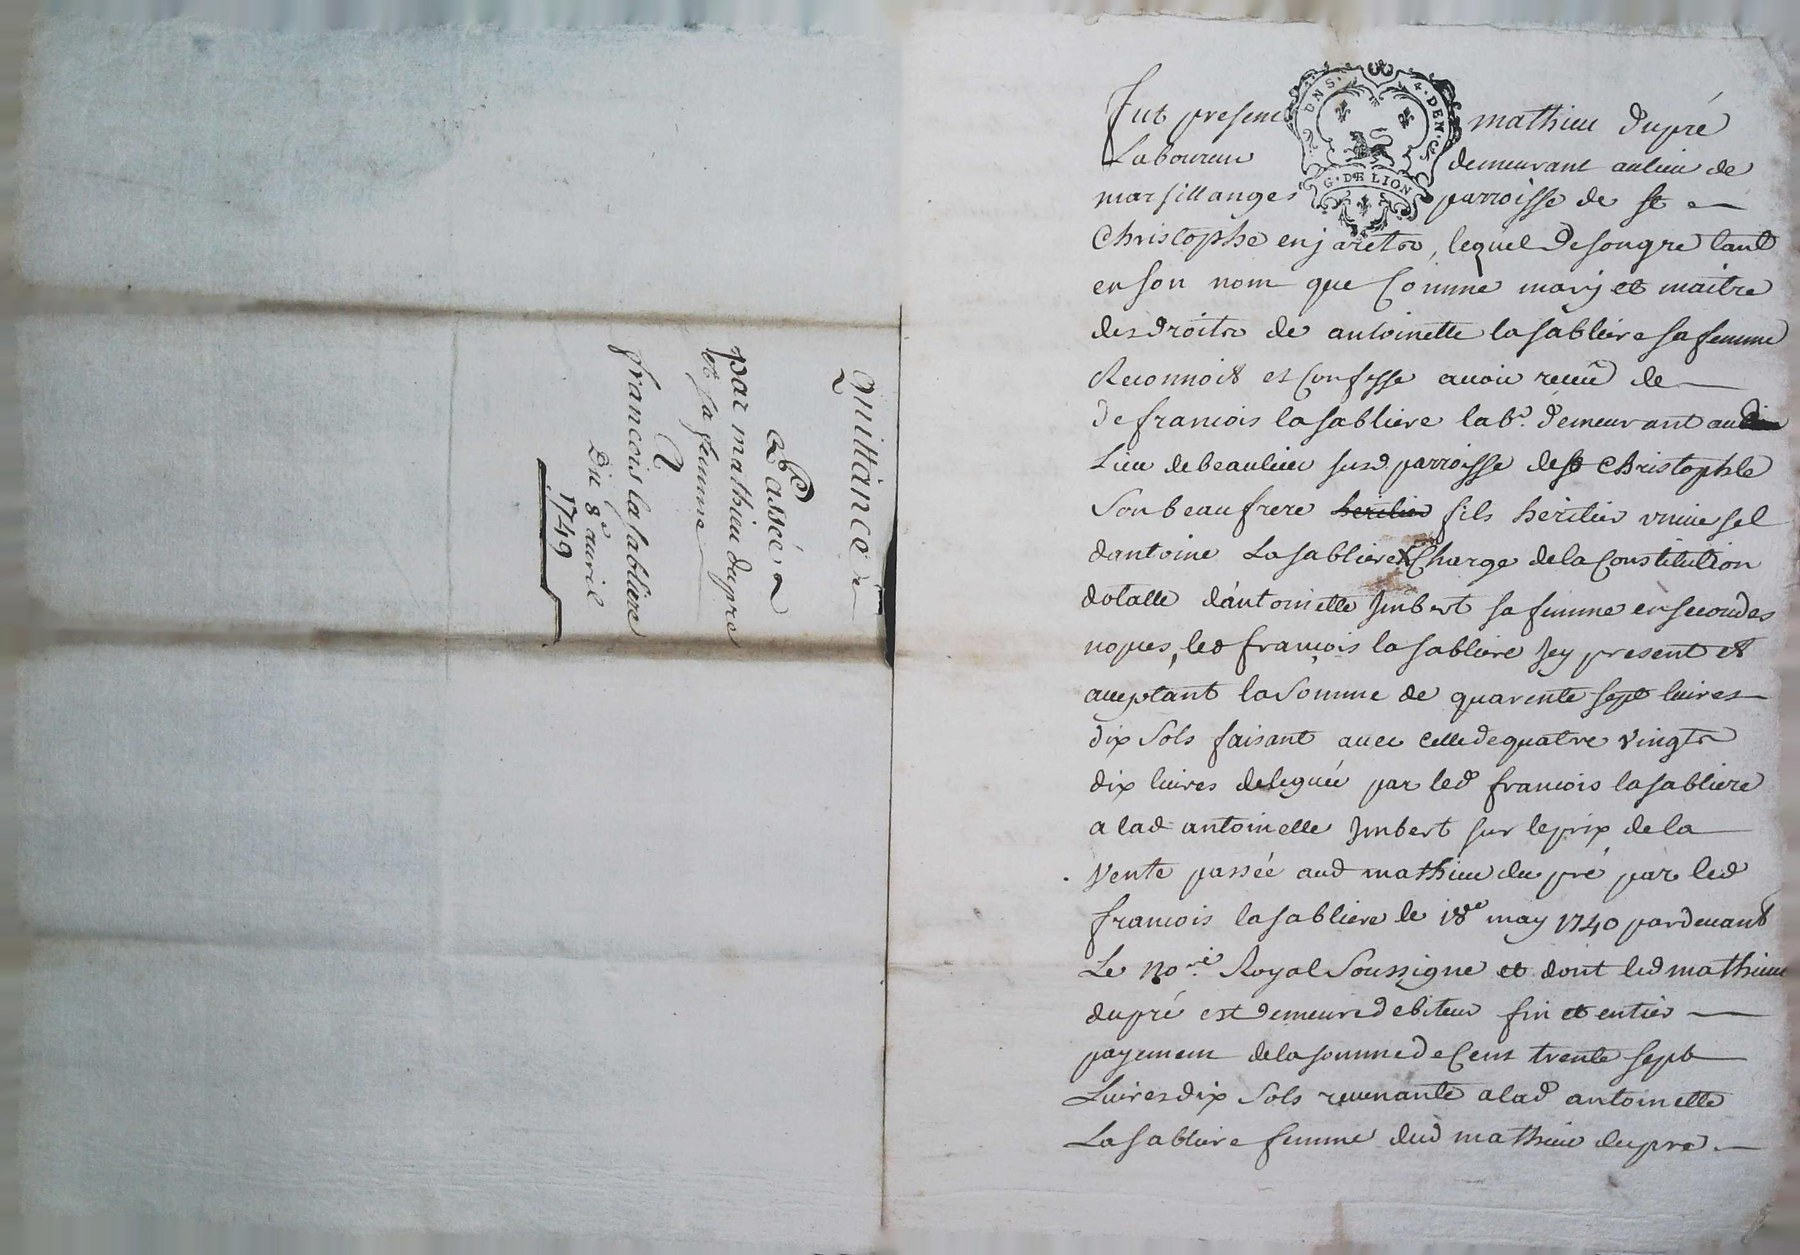 Quittance
Passée
par mathieu dupré
et sa femme
A
francois la sabliere
Du 8e auril
1749
DNS. 4. DEN.
G. DE LION
fut present mathieu dupré
Laboureur demeurant aulieu de
marsillanges parroisse de st
Christophe enjarets, lequel desongre tant
en son nom que Comme mary et maitre
des droits de antoinette la sabliere sa femme
Reconnoit et Confesse auoir receu de
de francois la sabliere lab.r demeurant au
Lieu debeaulieu susd parroisse dest Christophle
Son beaufrere heritier fils heritier uniuersel
dantoine La sabliere Charge dela Constitution
dotalle d'antoinette Jmbert sa femme en secondes
nopces, led françois la sabliere Jcy present et
acceptant la Somme de quarente sept liures
dix Sols faisant auec celle de quatre vingts
dix liures deleguée par led francois lasabliere
a lad antoinette Jmbert sur leprix de la
Vente passée aud mathieu du pré par led
francois la sabliere le 18e may 1740 pardeuant
Le no.re Royal Soussigne et dont led mathieu
dupré est demeure debiteur fin et entier
payement dela somme de Cent trente sept
Liures dix Sols reuenante alad antoinette
La sabliere femme dud mathieu dupre.